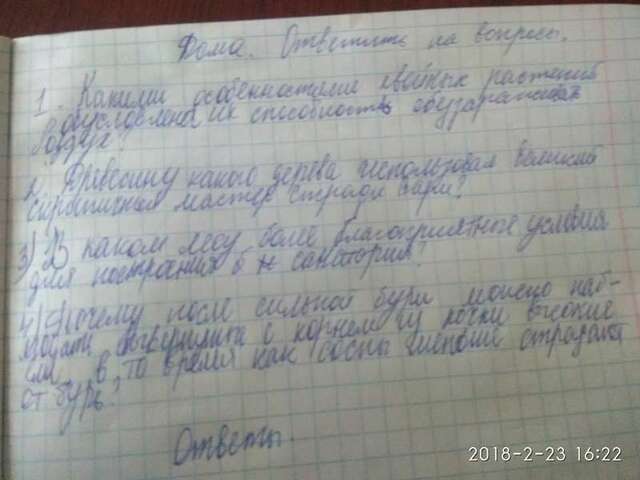 Дома. Ответить на вопросы.
1. Какими особенностями хвойных растений
обусловлена их способность обеззараживать
воздух?
2. Древесину какого дерева использовал великий
скрипичный мастер Страдивари?
3) В каком лесу более благоприятные условия
для построения б-н санатория?
4) Почему после сильной бури можно наб-
людать вывернутые с корнем из почвы высокие
ели, в то время как сосны меньше страдают
от бурь?
Ответы.
2018-2-23 16:22